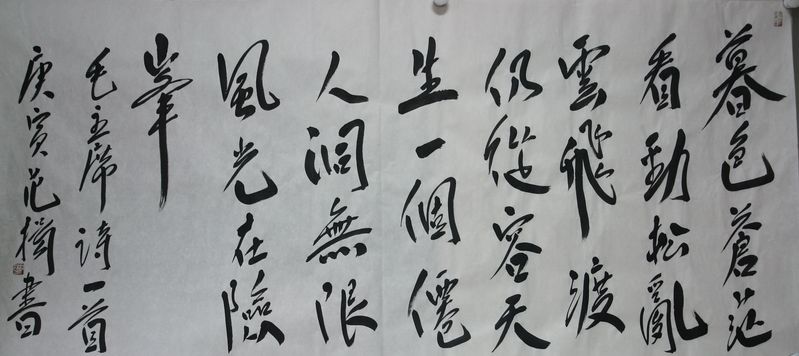 暮色蒼茫
看勁松亂
雲飛渡
仍從容天
生一個僊
人洞無限
風光在險
峯
毛主席诗一首
庚寅范書